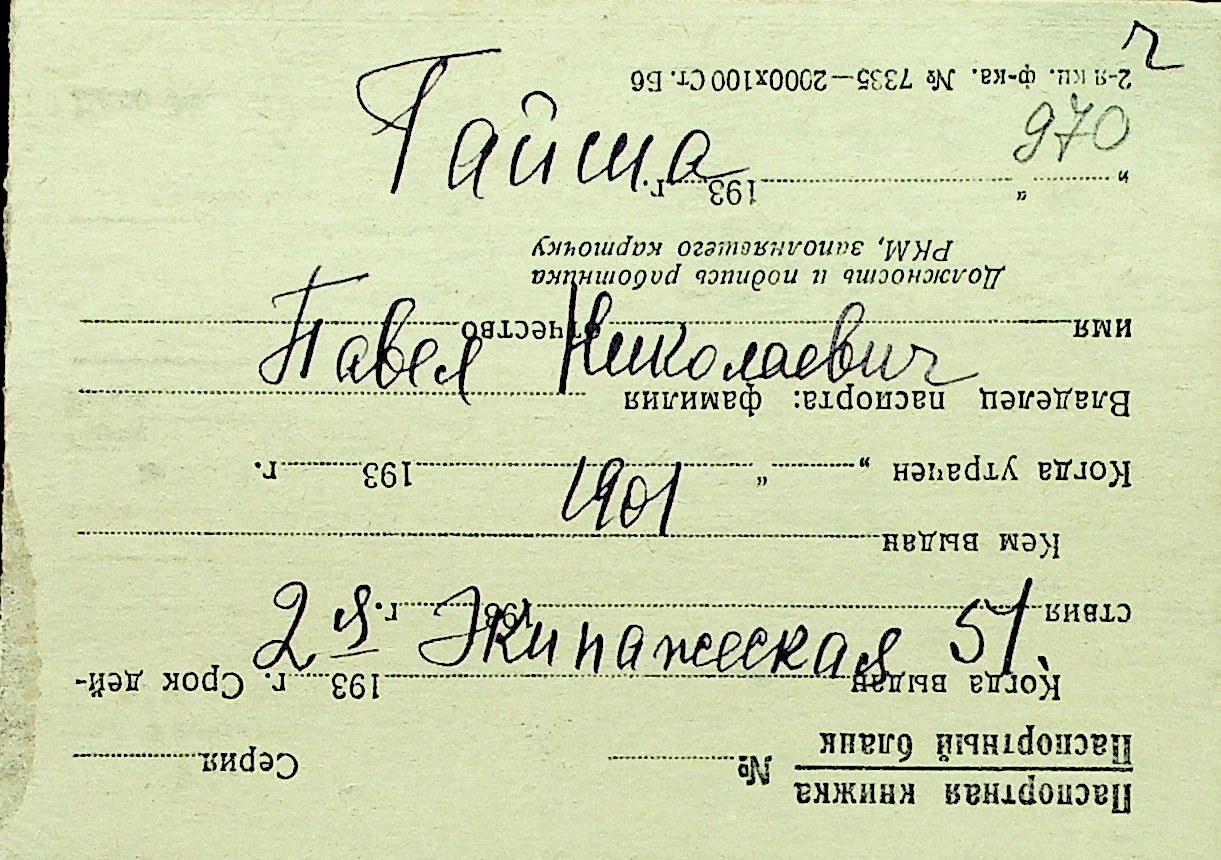 ч
Гайша
970
Павел Николаевич
1901
2 я Экипажеская 51.
Паспортная книжка
Паспортный бланк № Серия
Когда выдан 193 г. Срок дей-
ствия 193 г.
Кем выдан
Когда утрачен „ “ 193 г.
Владелец паспорта: фамилия
имя отчество
Должность и подпись работника
РКМ, заполнявшего карточку
„ “ 193 г.
2-я кн. ф-ка. № 7335—2000х100 Ст. Б6